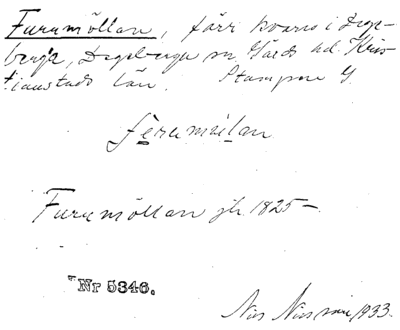 Furumöllan, förr kvarn i Dege-
berga, Degeberga sn Gärds hd. Kris-
tianstads län. Stampen G
ferumølan
Furumöllan jb. 1825–
Nr 5346.
Nils 1933.